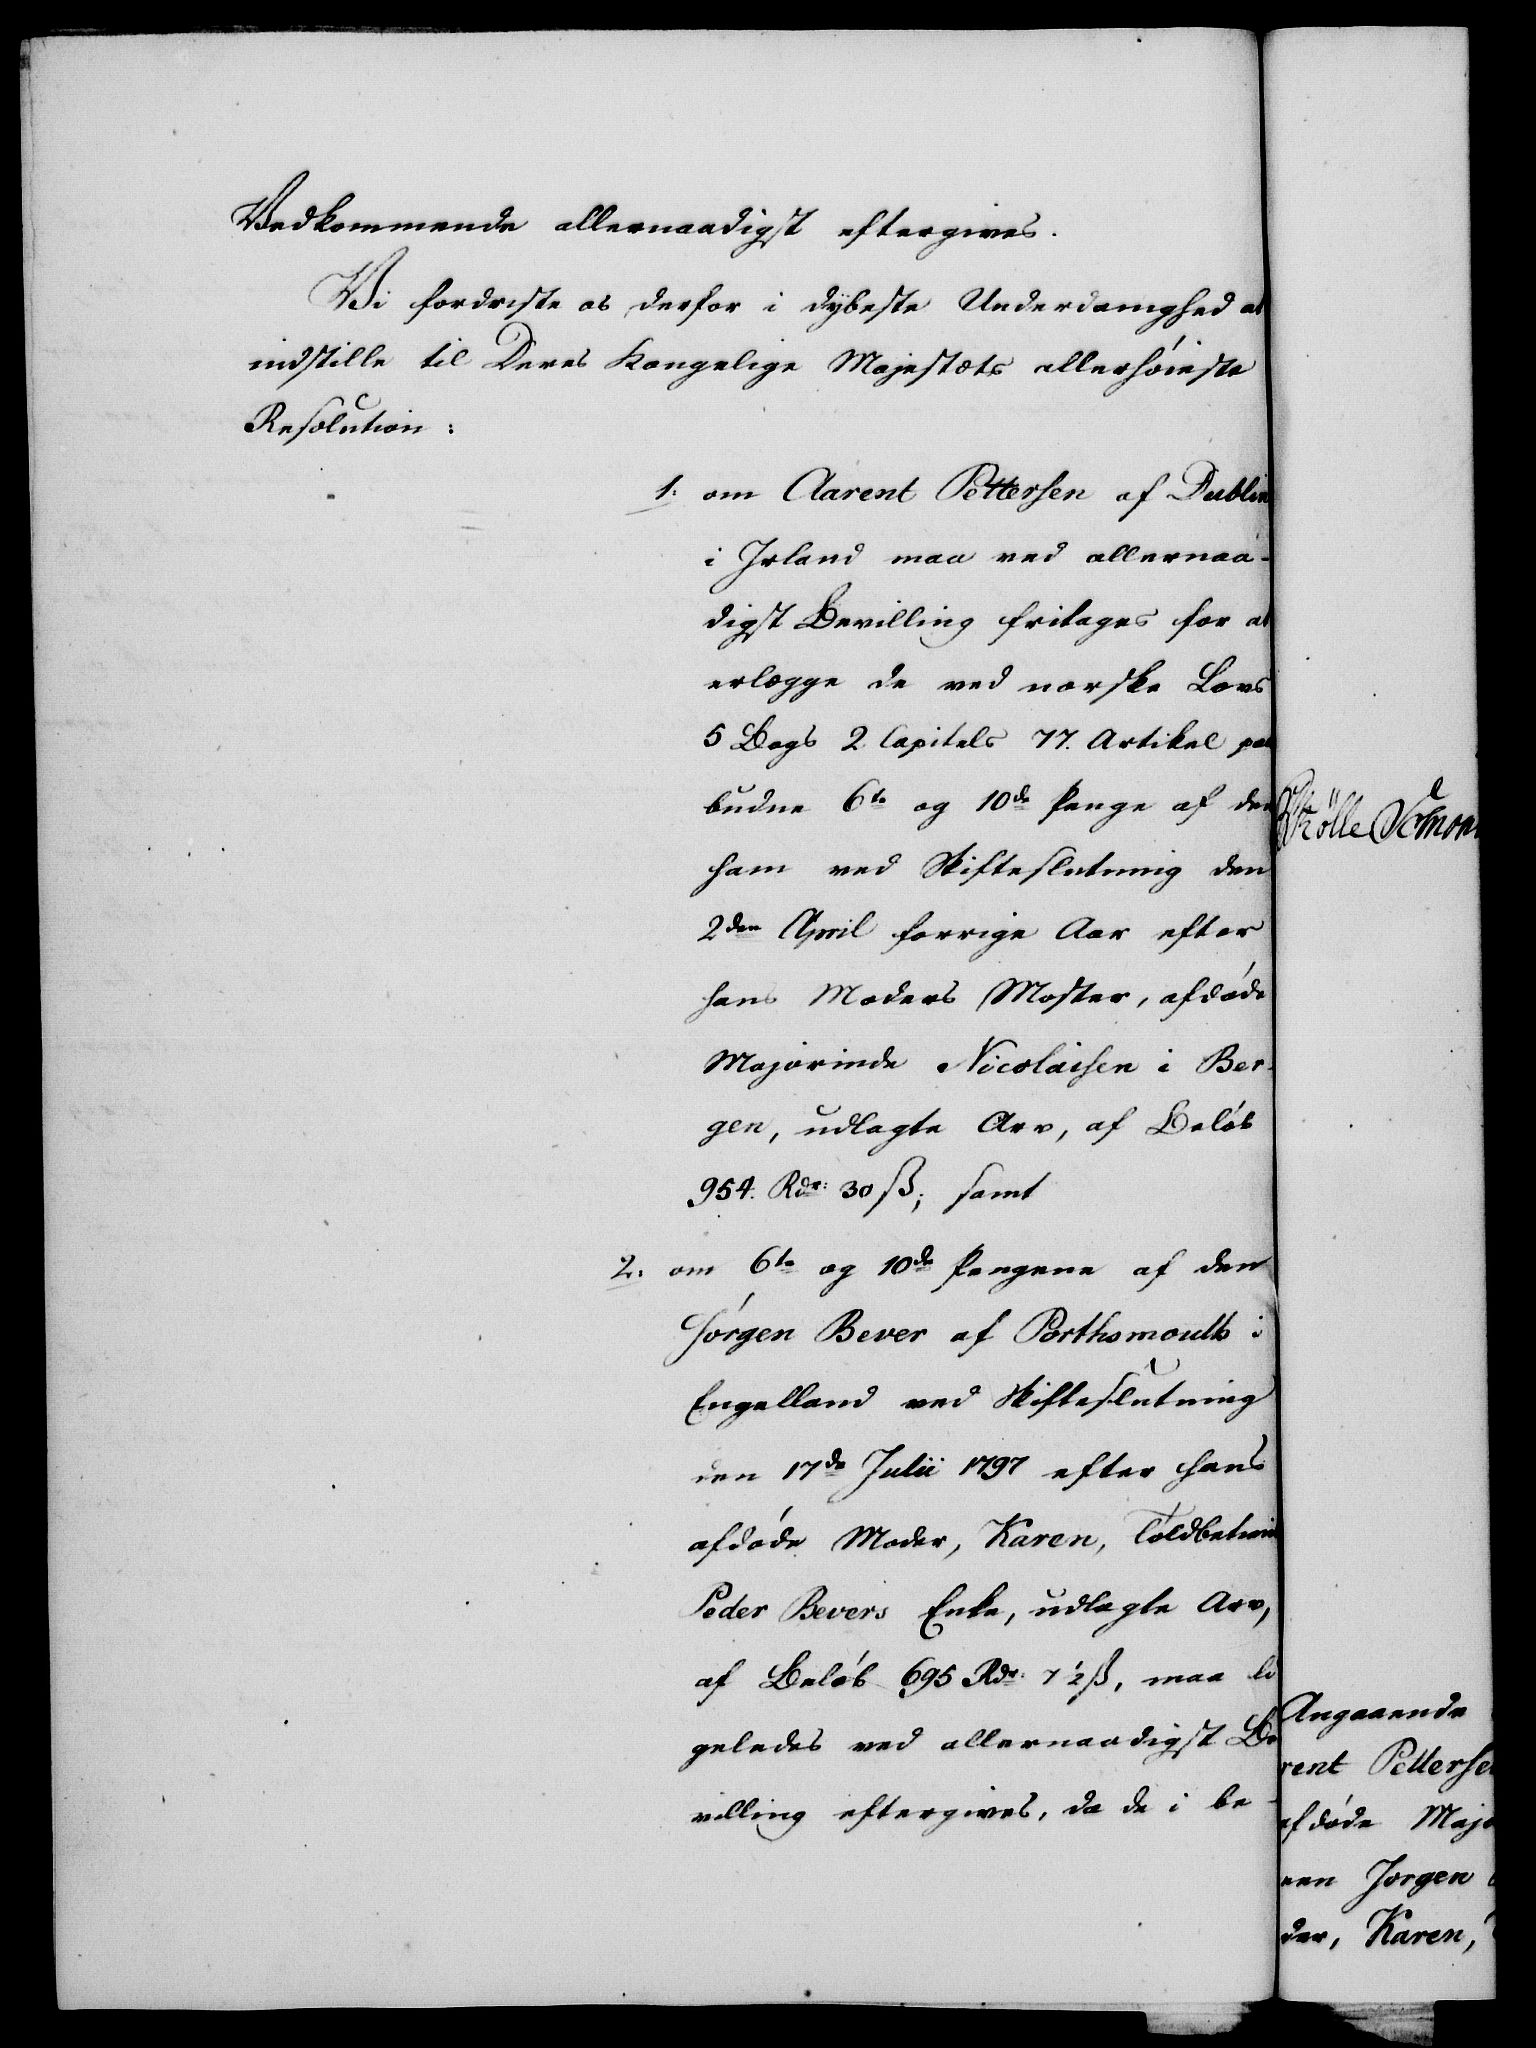 Vedkommende allernaadigst eftergives.
Vi fordriste os derfor i dybeste Underdanighed at
indstille til Deres Kongelige Majestæts allerhöieste
Resolution:
1. om Aarent Pettersen af Dublin
i Irland maa ved allernaa-
digst Bevilling fritages for at
erlægge de ved norske Lovs
5 Bogs 2 Capitels 77. Artikel paa
budne 6te og 10de Penge af den
ham ved Skifteslutning den
2den April forrige Aar efter
hans Moders Moster, afdöde
Majorinde Nicolaisen i Ber-
gen, udlagte Arv, af Belöb
954. Rdr: 30 ß; samt
2. om 6te og 10de Pengene af den
Jörgen Bever af Porthsmouth i
Engelland ved Skifteslutning
den 17de Julii 1797 efter hans
afdöde Moder, Karen, Toldbetient
Peder Bevers Enke, udlagte Arv,
af Belöb 695 Rdr: 7 ½ ß, maa li
geledes ved allernaadigst Be
villing eftergives, da de i be-
Angaaende
rent Pettersen
afdöde Majo
een Jorgen
der, Karen,